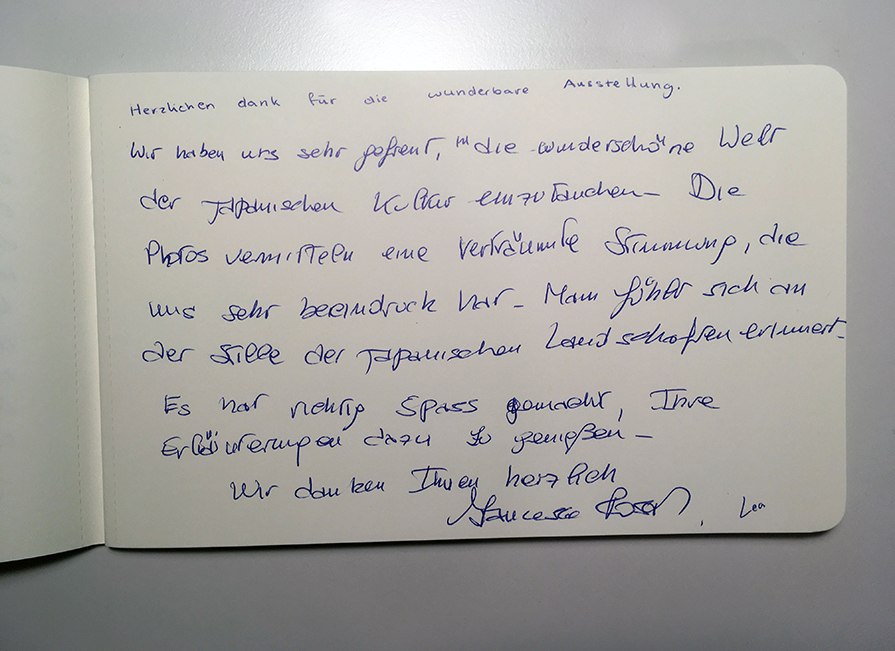 Herzlichen dank für die wunderbare Ausstellung.
Wir haben uns sehr gefreut, in die wunderschöne Welt
der japanischen Kultur einzutauchen. Die
Photos vermitteln eine verträumte Stimmung, die
uns sehr beeindruck hat. Man fühlt sich an
der Stille der japanischen Landschaften erinnert.
Es hat richtig Spass gemacht, Ihre
Erläuterungen dazu zu genießen.
Wir danken Ihnen herzlich
Francesca , Lea